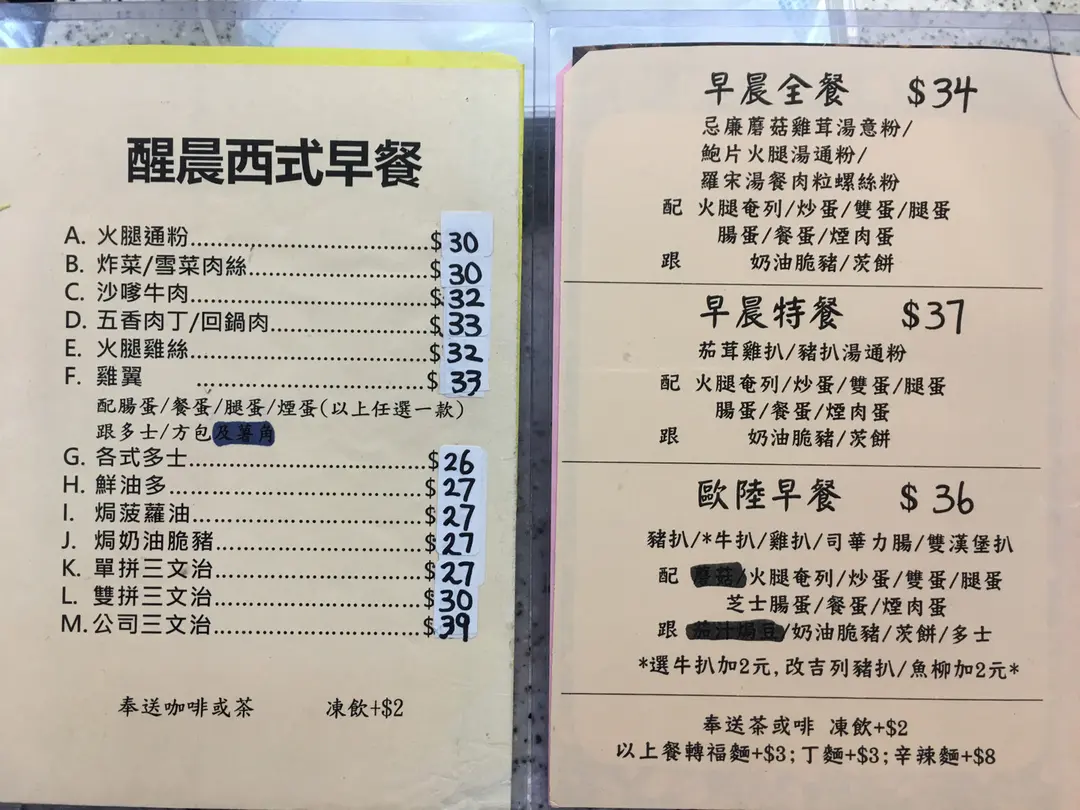 醒晨西式早餐
A. 火腿通粉..............................$30
B. 炸菜/雪菜肉絲......................$30
C. 沙嗲牛肉..............................$32
D. 五香肉丁/回鍋肉...................$33
E. 火腿雞絲..............................$32
F. 雞翼 ..............................$33
配腸蛋/餐蛋/腿蛋/煙蛋(以上任選一款)
跟多士/方包及薯角
G. 各式多士..............................$26
H. 鮮油多.................................$27
I. 焗菠蘿油..............................$27
J. 焗奶油脆豬...........................$27
K. 單拼三文治...........................$27
L. 雙拼三文治...........................$30
M. 公司三文治...........................$39
奉送咖啡或茶 凍飲+$2
早晨全餐 $34
忌廉蘑菇雞茸湯意粉/
鮑片火腿湯通粉/
羅宋湯餐肉粒螺絲粉
配 火腿奄列/炒蛋/雙蛋/腿蛋
腸蛋/餐蛋/煙肉蛋
跟 奶油脆豬/茨餅
早晨特餐 $37
茄茸雞扒/豬扒湯通粉
配 火腿奄列/炒蛋/雙蛋/腿蛋
腸蛋/餐蛋/煙肉蛋
跟 奶油脆豬/茨餅
歐陸早餐 $36
豬扒/*牛扒/雞扒/司華力腸/雙漢堡扒
配 蘑菇/火腿奄列/炒蛋/雙蛋/腿蛋
芝士腸蛋/餐蛋/煙肉蛋
跟 茄汁焗豆/奶油脆豬/茨餅/多士
*選牛扒加2元,改吉列豬扒/魚柳加2元*
奉送茶或啡 凍飲+$2
以上餐轉福麵+$3;丁麵+$3;辛辣麵+$8